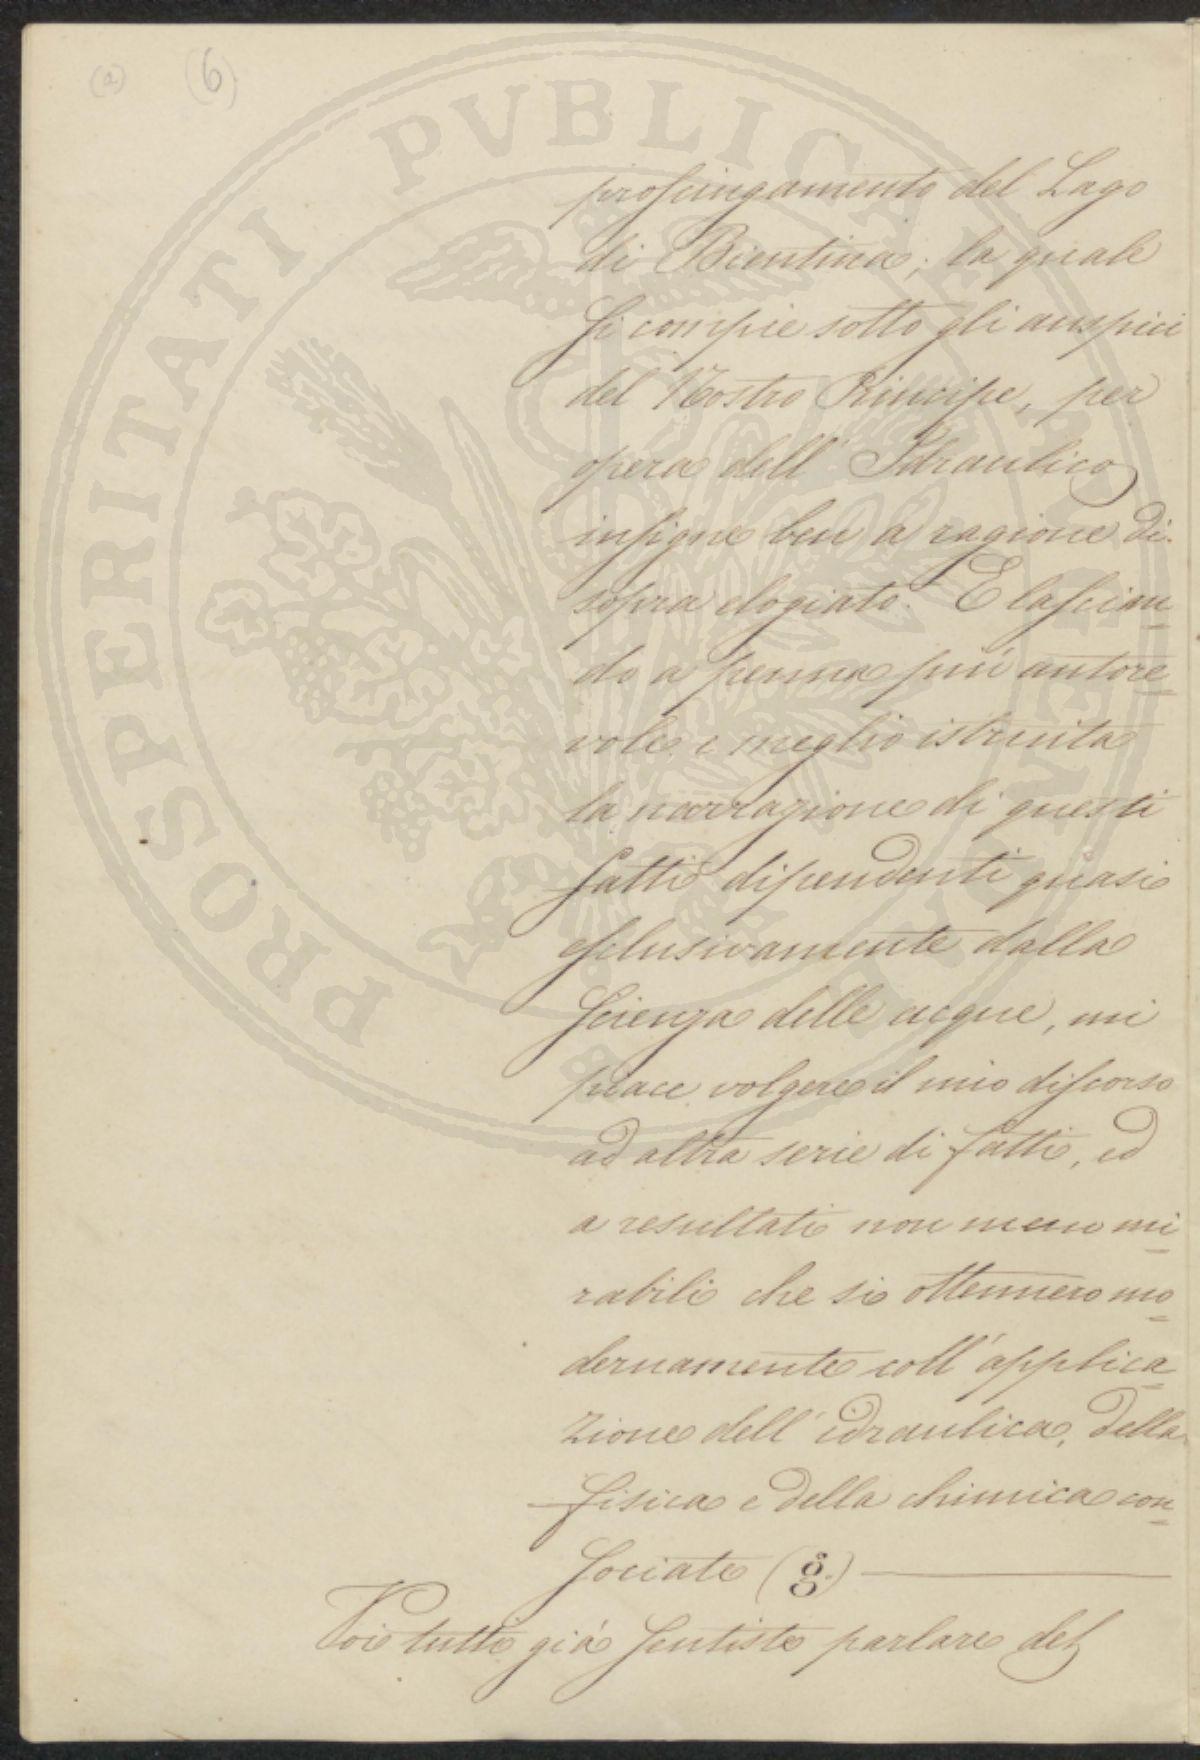 (a) (6)
PROSPERITATI PVBLICAE
prosciugamento del Lago
di Bientina; la quale
si compie sotto gli auspici
del Nostro Principe, per
opera dell' Idraulico
insigne ben a ragione di
sopra elogiato. E lascian=
do a penna più autore=
vole e meglio istruita
la narrazione di questi
fatti dipendenti quasi
esclusivamente dalla
scienza delle acque, mi
piace volgere il mio discorso
ad altra serie di fatti, ed
a resultati non meno mi=
rabili che si ottennero mo=
dernamente coll' applica=
zione dell' idraulica, della
fisica e della chimica con=
sociate (g.)
Voi tutti già sentiste parlare del